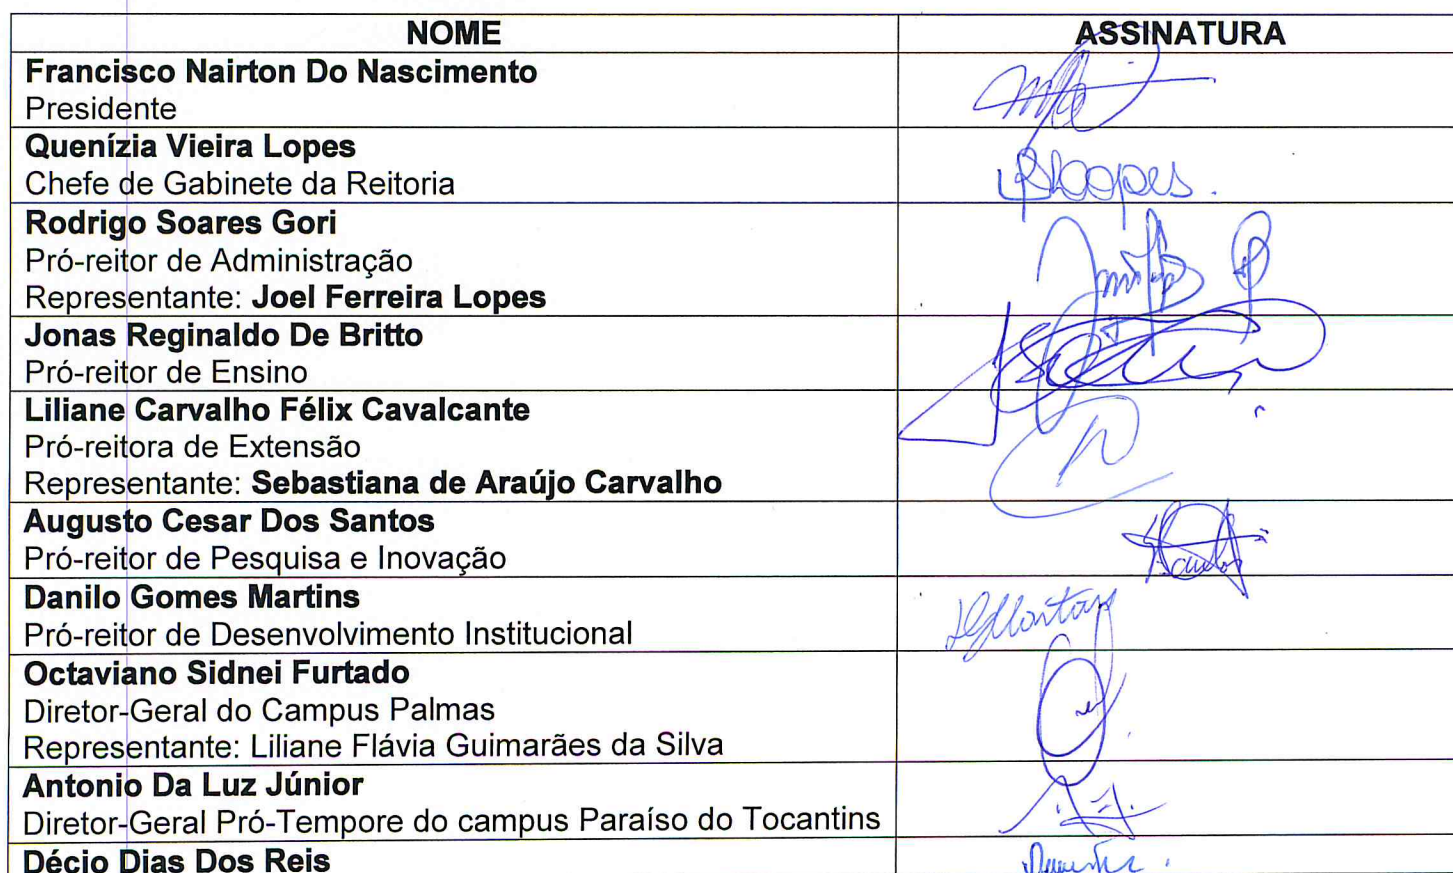 NOME ASSINATURA
Francisco Nairton Do Nascimento
Presidente
Quenízia Vieira Lopes
Chefe de Gabinete da Reitoria
Rodrigo Soares Gori
Pró-reitor de Administração
Representante: Joel Ferreira Lopes
Jonas Reginaldo De Britto
Pró-reitor de Ensino
Liliane Carvalho Félix Cavalcante
Pró-reitora de Extensão
Representante: Sebastiana de Araújo Carvalho
Augusto Cesar Dos Santos
Pró-reitor de Pesquisa e Inovação
Danilo Gomes Martins
Pró-reitor de Desenvolvimento Institucional
Octaviano Sidnei Furtado
Diretor-Geral do Campus Palmas
Representante: Liliane Flávia Guimarães da Silva
Antonio Da Luz Júnior
Diretor-Geral Pró-Tempore do campus Paraíso do Tocantins
Décio Dias Dos Reis